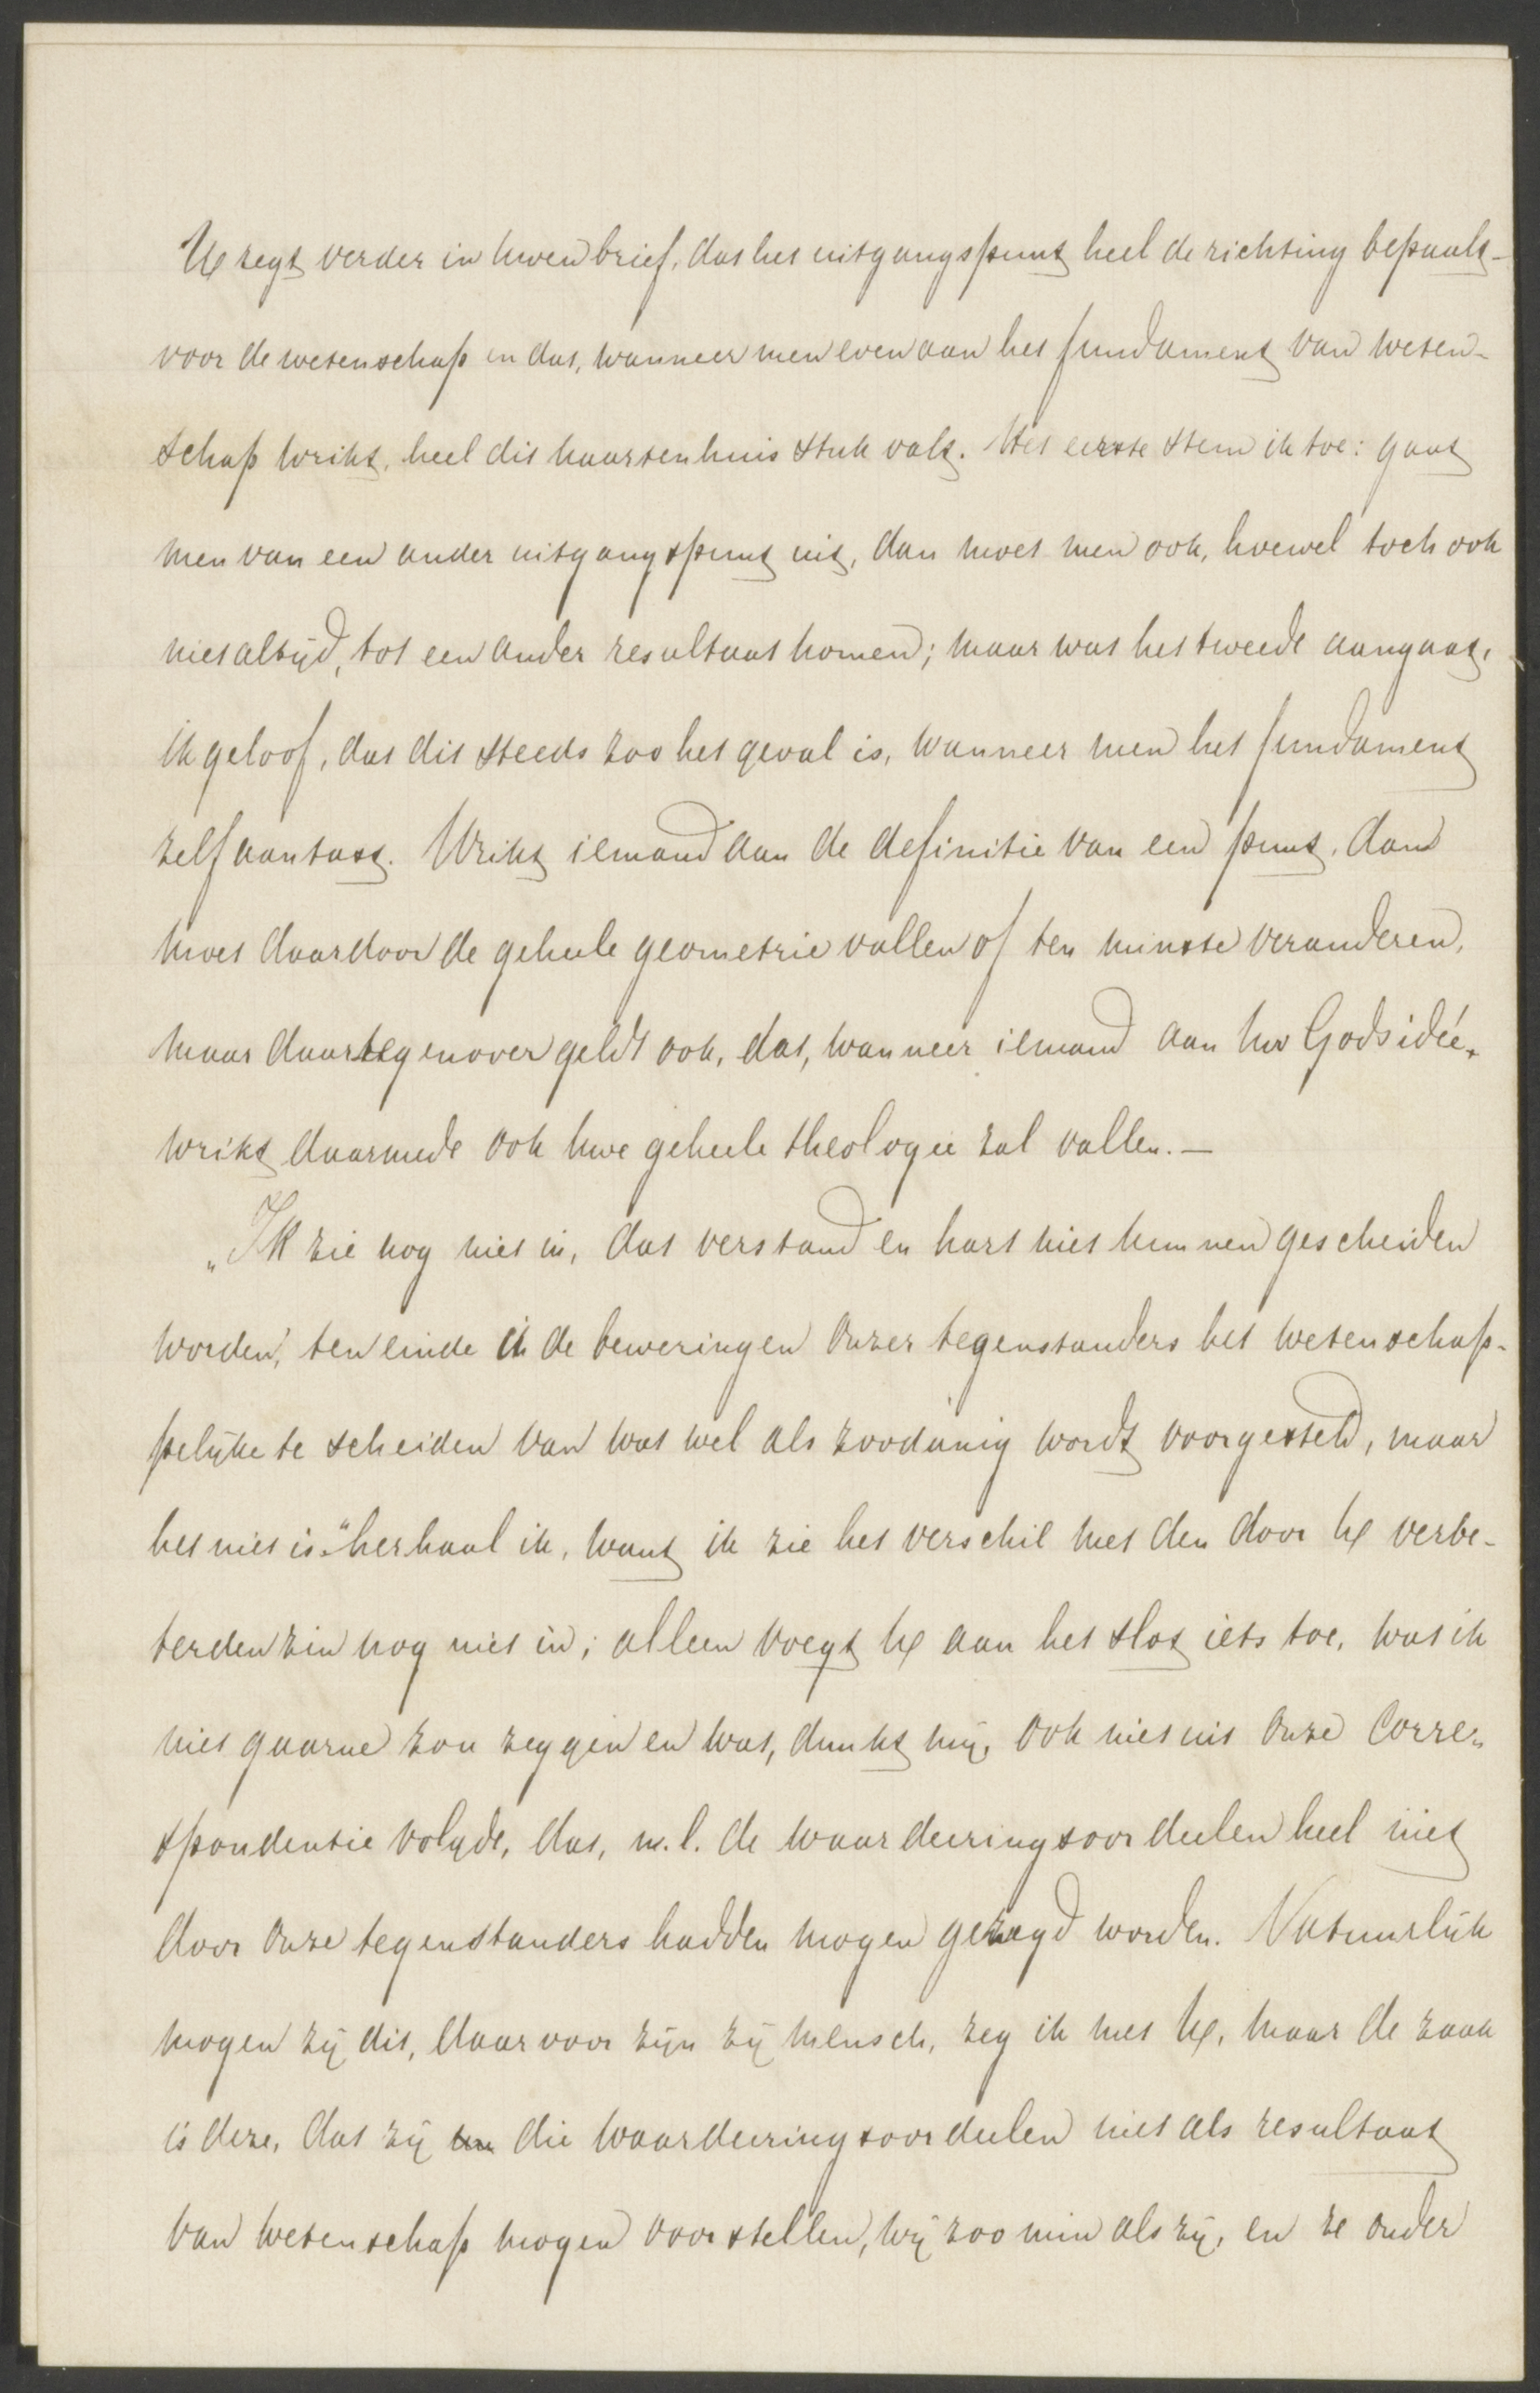 Ue zegt verder in Uwen brief, dat het uitgangspunt heel de richting bepaalt
voor de wetenschap en dat, wanneer men even aan het fundament van weten-
schap wrikt, heel dit kaartenhuis stuk valt. Het eerste stem ik toe: gaat
men van een ander uitgangspunt uit, dan moet men ook, hoewel toch ook
niet altijd, tot een ander resultaat komen; maar wat het tweede aangaat,
ik geloof, dat dit steeds zoo het geval is, wanneer men het fundament
zelf aantast. Wrikt iemand aan de definitie van een punt, dan
moet daardoor de geheele geometrie vallen of ten minste veranderen,
maar daartegenover geldt ook, dat, wanneer iemand aan Uw Godsidée
wrikt daarmede ook Uwe geheele theologie zal vallen. —
„Ik zie nog niet in, dat verstand en hart niet kunnen gescheiden
worden, ten einde in de beweringen onzer tegenstanders het wetenschap-
pelijke te scheiden van wat wel als zoodanig wordt voorgesteld, maar
het niet is." herhaal ik, want ik zie het verschil met den door Ue verbe-
terden zin nog niet in; alleen voegt Ue aan het slot iets toe, wat ik
niet gaarne zou zeggen en wat, dunkt mij, ook niet uit onze Corre-
spondentie volgde, dat, n.l. de waardeeringsoordeelen heel niet
door onze tegenstanders hadden mogen gezegd worden. Natuurlijk
mogen zij dit, daarvoor zijn zij mensch, zeg ik met Ue, maar de zaak
is deze, dat zij die waardeeringsoordeelen niet als resultaat
van wetenschap mogen voorstellen, wij zoo min als zij, en ze onder